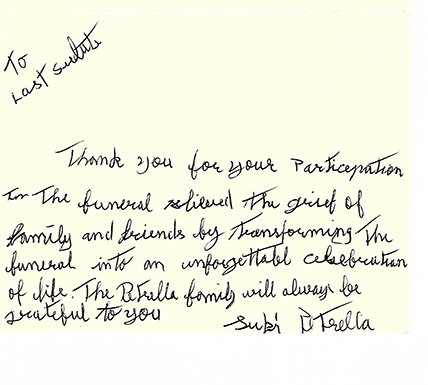 To
Last Salute
Thank you for your Participation
in The funeral relieved the grief of
family and friends by transforming The
funeral into an unforgettabl celebration
of life. The DiTrella family will always be
grateful to you
Suki DiTrella